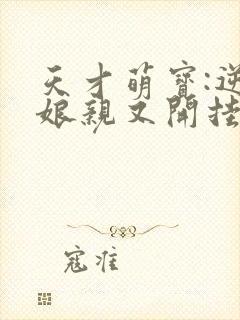 天才萌寶:逆
娘親又開挂
寇淮